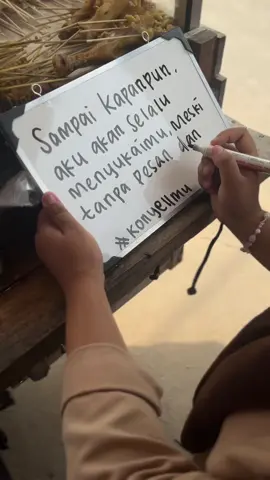 Sampai kapanpun,
aku akan selalu
menyukaimu, meski
tanpa pesan dan
#konyelImu